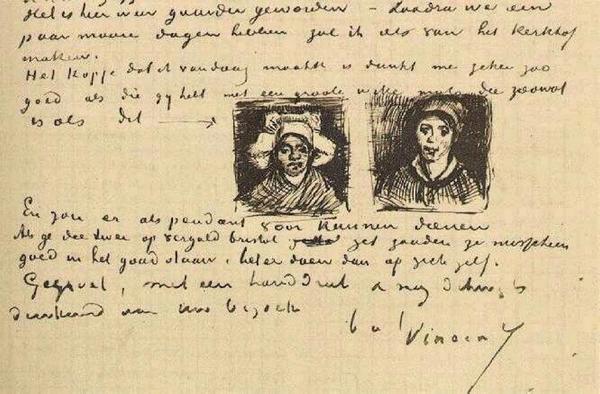 Het is hier weer guurder geworden – Zoodra we een
paar mooie dagen hebben zal ik iets van het kerkhof
maken.
Het kopje dat ik vandaag maakte is dunkt me zeker zoo
goed als die gij hebt met een groote witte muts die zoowat
is als dit
En zou er als pendant voor kunnen dienen
Als ge die twee op verguld bristol zet zouden ze misschien
goed in het goud staan, beter doen dan op zich zelf.
Gegroet, met een handdruk & nog dikwijls
denkend aan uw bezoek
b. à t.
Vincent